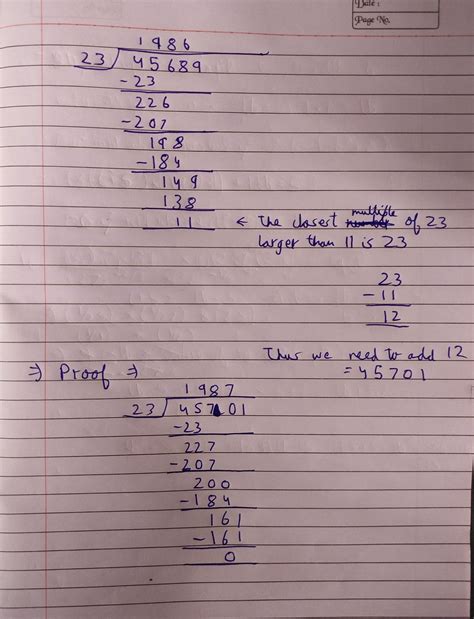 Date :
Page No.
1986
23 45689
-23
226
-207
198
-184
149
138
11 ← The closest multiple of 23
larger than 11 is 23
23
-11
12
Thus we need to add 12
= 45701
⇒ Proof ⇒
1987
23 45701
-23
227
-207
200
-184
161
-161
0